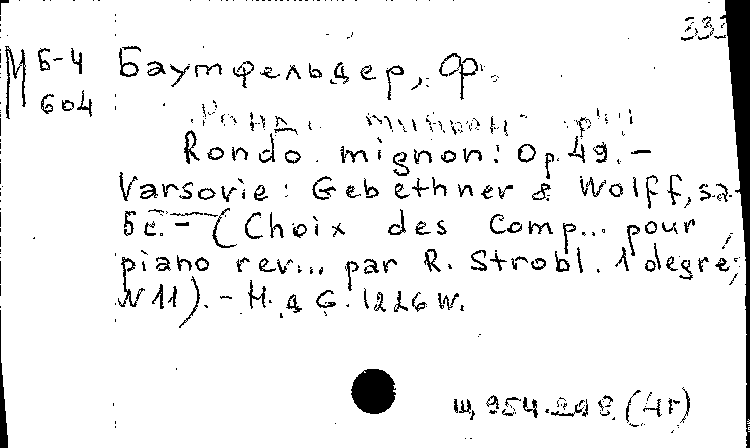 333
М Б-4
604
Баумфельдер, Ф.
Рондо миньон
Rondo mignon: Op. 49. –
Varsovie: Gebethner & Wolff, sa-
5 с. – (Choix des Comp... pour
piano rev... par R. Strobl. 1 degré;
N 11). – H. & G. 1226 W.
щ 954.298 (4г)